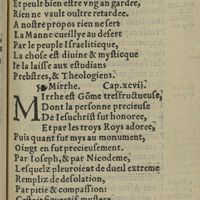 Et peult bien estre vng an gardee,
Rien ne vault oultre retardee.
A nostre propos rien ne sert
La Manne cueillye au desert
Par le peuple Israeliticque,
La chose est diuine & mysticque
Ie la laisse aux estudians
Prebstres, & Theologiens.
Mirrhe. Cap.xcvij.
MIrrhe est Gõme tresfructueuse,
Dont la personne precieuse
De Iesuchrist fut honoree,
Et par les troys Roys adoree,
Puis quant fut mys au monument,
Oingt en fut precieusement.
Par Ioseph, & par Nicodeme,
Lesquelz pleuroient de dueil extreme
Rempliz de desolation,
Par pitie & compassion: